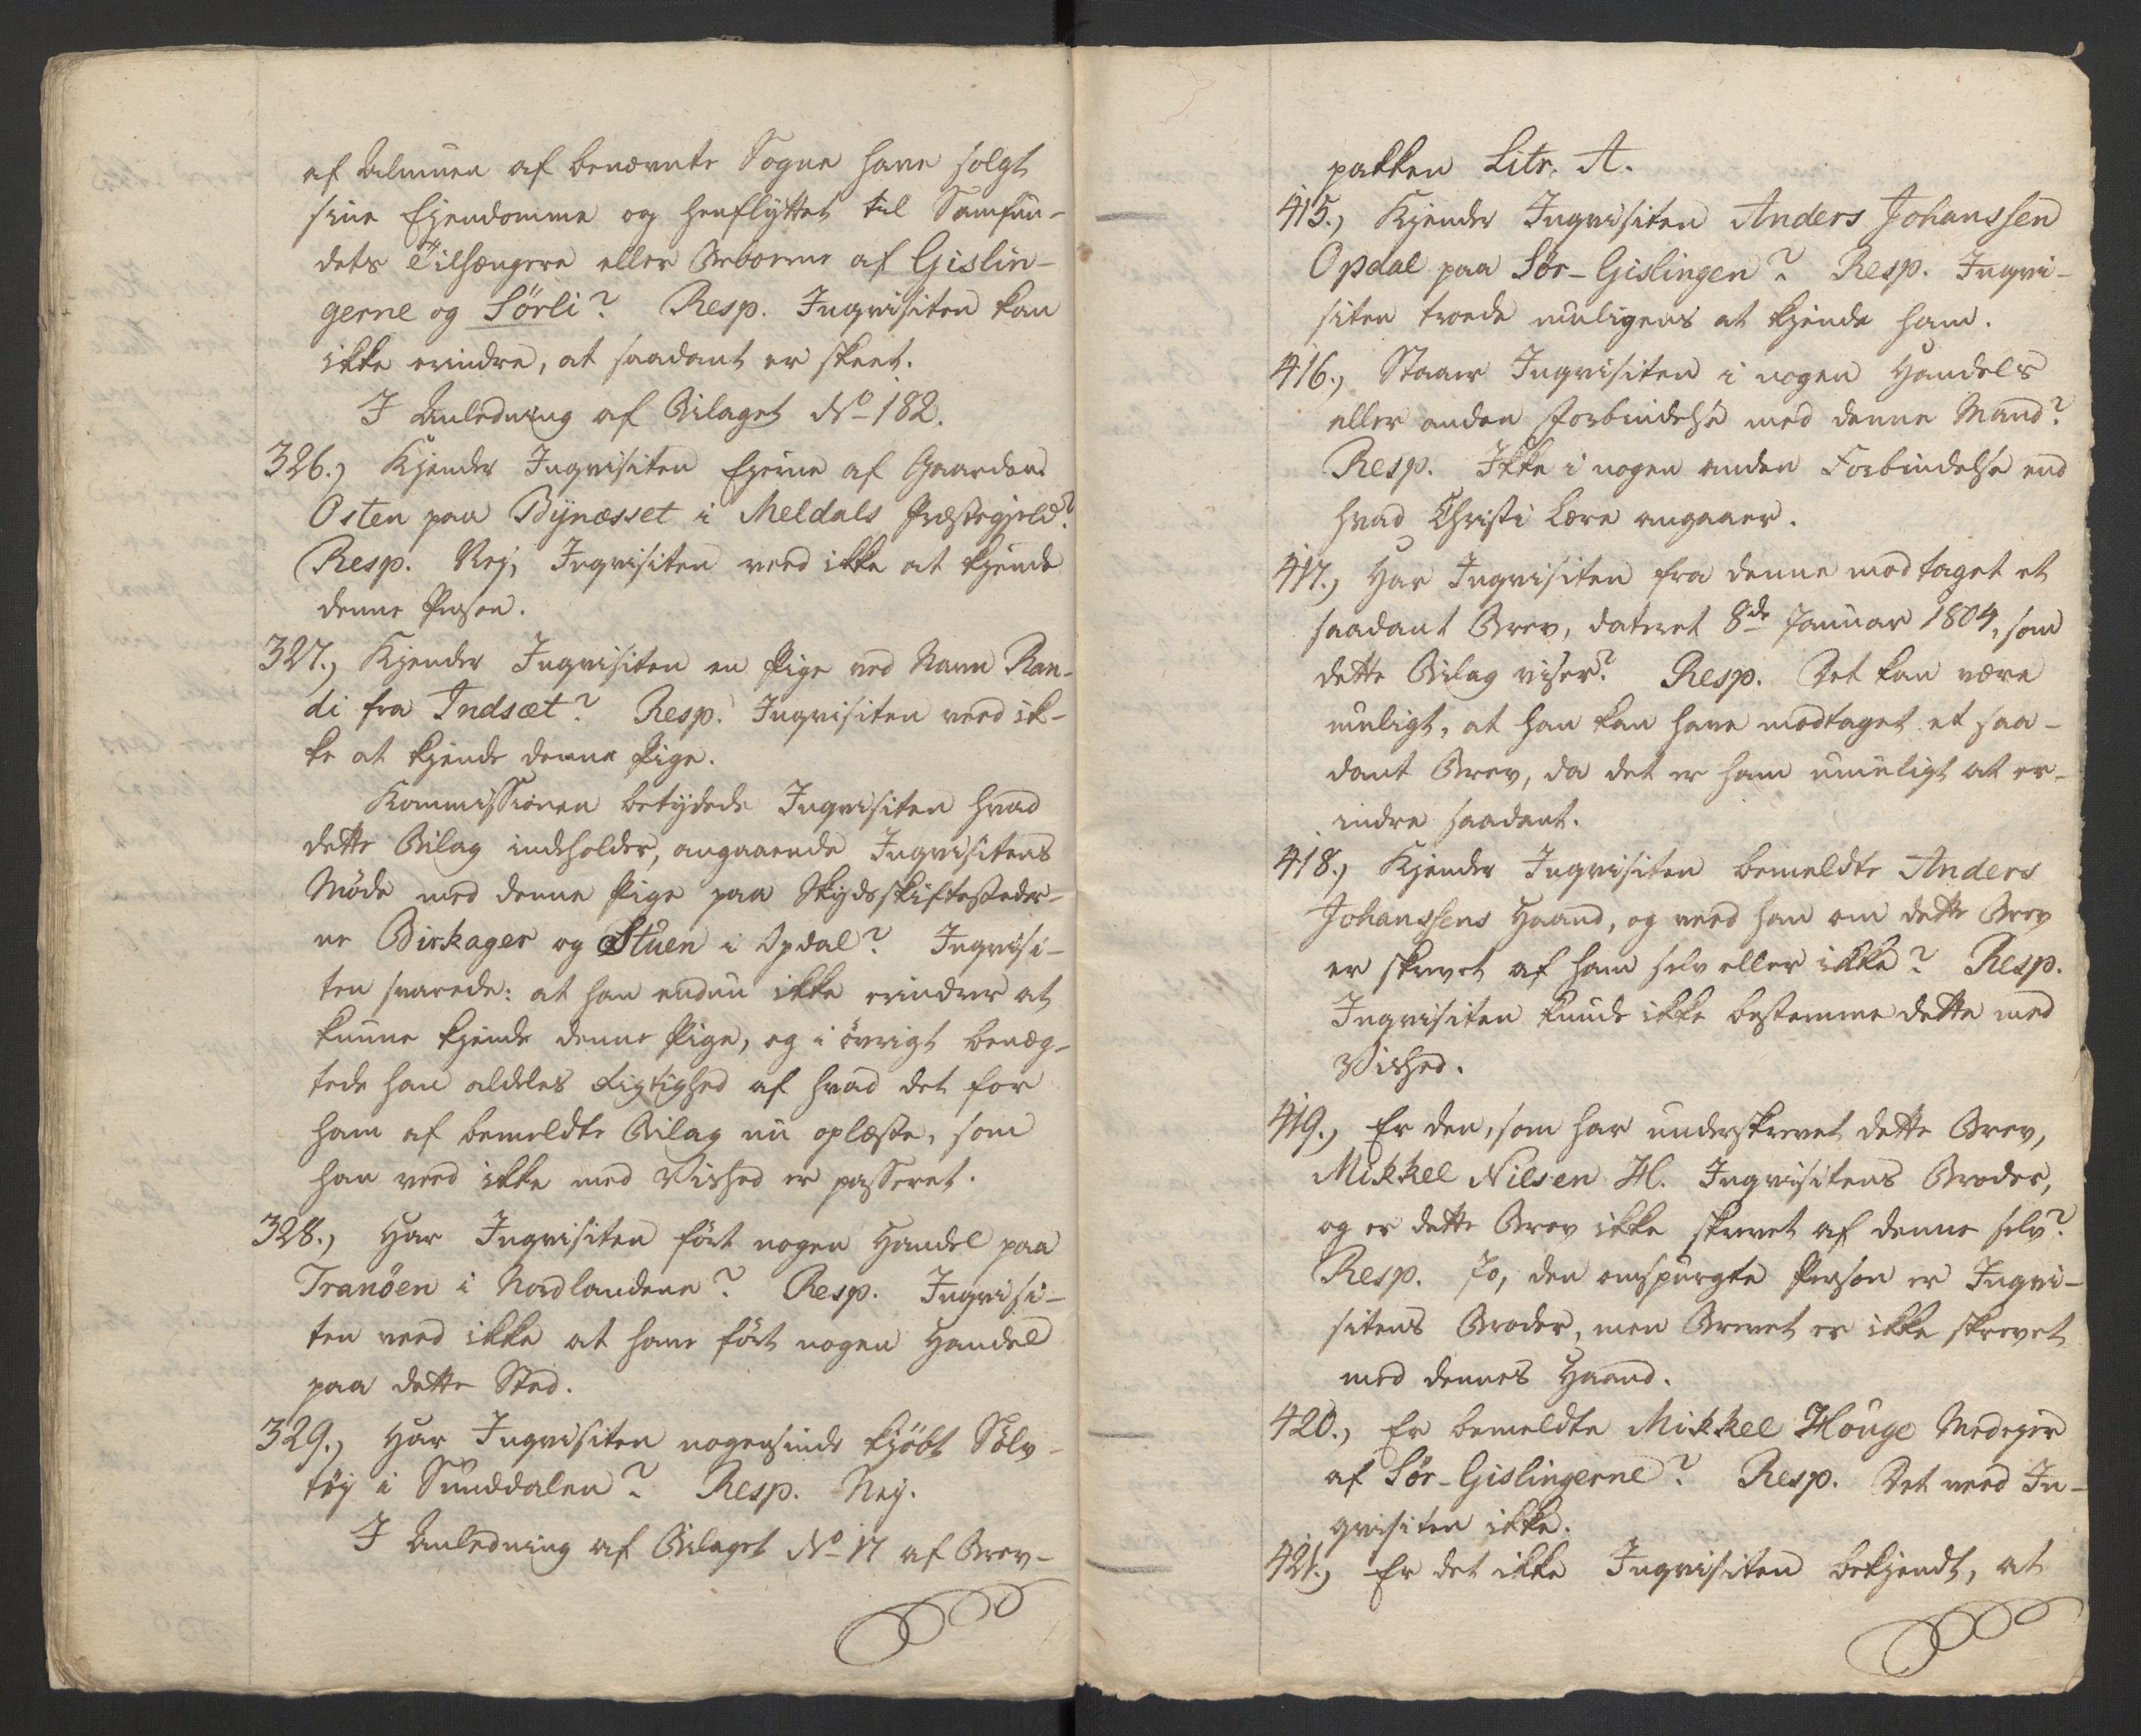 af Almuen af benævnte Sogne have solgt
sine Ejendomme og henflyttet til Samfun-
dets Tilhængere eller Beboerne af Gislin-
gerne og Sörli? Resp. Inqvisiten kan
ikke erindre, at saadant er skeet.
I Anledning af Bilaget No 182.
326.) Kjender Inqvisiten Ejerne af Gaarden
Osten paa Bynæsset i Meldals Præstegjeld?
Resp. Nej, Inqvisiten veed ikke at kjende
denne Person.
327.) Kjender Inqvisiten en Pige ved Navn Ran-
di fra Indsæt? Resp. Inqvisiten veed ik-
ke at kjende denne Pige.
Kommissionen betydede Inqvisiten hvad
dette Bilag indeholder, angaaende Inqvisitens
Møde med denne Pige paa Skydsskiftesteder-
ne Birkager og Stuen i Opdal? Inqvisi-
ten svarede: at han endnu ikke erindrer at
kunne kjende denne Pige, og i övrigt benæg-
tede han aldeles Rigtighed af hvad det for
ham af bemeldte Bilag nu oplæste, som
han veed ikke med Vished er passeret.
328.) Har Inqvisiten fört nogen Handel paa
Tranöen i Nordlandene? Resp. Inqvisi-
ten veed ikke at have fört nogen Handel
paa dette Sted.
329.) Har Inqvisiten nogensinde kjöbt Sölv-
töj i Sunddalen? Resp. Nej.
I Anledning af Bilaget No 17 af Brev-
pakken Litr. A.
415.) Kjender Inqvisiten Anders Johanssen
Opdal paa Sör-Gislingen? Resp. Inqvi-
siten troede muligens at kjende ham.
416.) Staaer Inqvisiten i nogen Handels
eller anden Forbindelse med denne Mand?
Resp. Ikke i nogen anden Forbindelse end
hvad Christi Lære angaaer.
417.) Har Inqvisiten fra denne modtaget et
saadant Brev, dateret 8de Januar 1804, som
dette Bilag viser? Resp. Det kan være
muligt, at han kan have modtaget et saa-
dant Brev, da det er ham umuligt at er-
indre saadant.
418.) Kjender Inqvisiten bemeldte Anders
Johanssens Haand, og veed han om dette Brev
er skrevet af ham selv eller ikke? Resp.
Inqvisiten kunde ikke bestemme dette med
Vished.
419.) Er den, som har underskrevet dette Brev,
Mikkel Nilsen H. Inqvisitens Broder,
og er dette Brev ikke skrevet af denne selv?
Resp. Jo, den omspurgte Person er Inqvi-
sitens Broder, men Brevet er ikke skrevet
med dennes Haand.
420.) Er bemeldte Mikkel Houge Medejer
af Sör-Gislingerne? Resp. Det veed In-
qvisiten ikke.
421.) Er det ikke Inqvisiten bekjendt, at